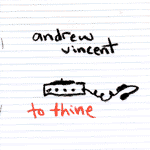 andrew
vincent
to thine